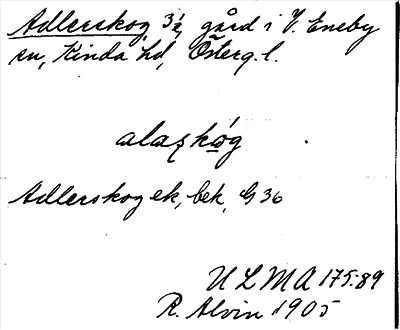 Adlerskog 3/2, gård i V. Eneby
sn, Kinda hd, Österg. l.
alaʂkóg
Adlerskog ek, bek, G 36
ULMA 175:89
R. Alvin 1905